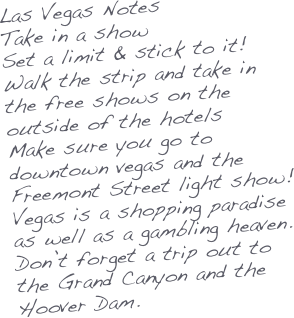 Las Vegas Notes
Take in a show
Set a limit & stick to it!
Walk the strip and take in
the free shows on the
outside of the hotels
Make sure you go to
downtown vegas and the
Freemont Street light show!
Vegas is a shopping paradise
as well as a gambling heaven.
Don't forget a trip out to
the Grand Canyon and the
Hoover Dam.